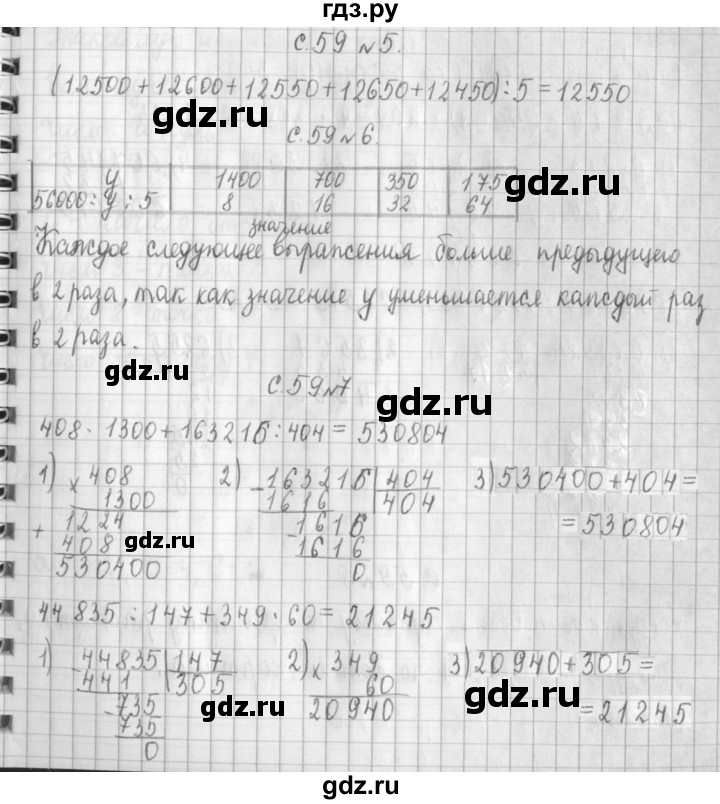 гдз.ру
с.59 №5.
(12500+12600+12550+12650+12450):5=12550
gdz.ru gdz.ru
с.59№6.
у 1400 700 350 175
56000:у:5 8 16 32 64
gdz.ru gdz.ru
значение
Каждое следующее выражения больше предыдущего
в 2 раза, так как значение у уменьшается каждый раз
в 2 раза.
gdz.ru
с.59№7
gdz.ru
408·1300+163216:404=530804
1) × 408
1300
+ 1224
408
530400
2) - 163216 404
1616 404
- 1616
1616
0
3) 530400+404=
=530804
gdz.ru gdz.ru
44835:147+349·60=21245
1) - 44835 147
441 305
- 735
735
0
2) × 349
60
20940
3) 20940+305=
=21245
gdz.ru gdz.ru
gdz.ru